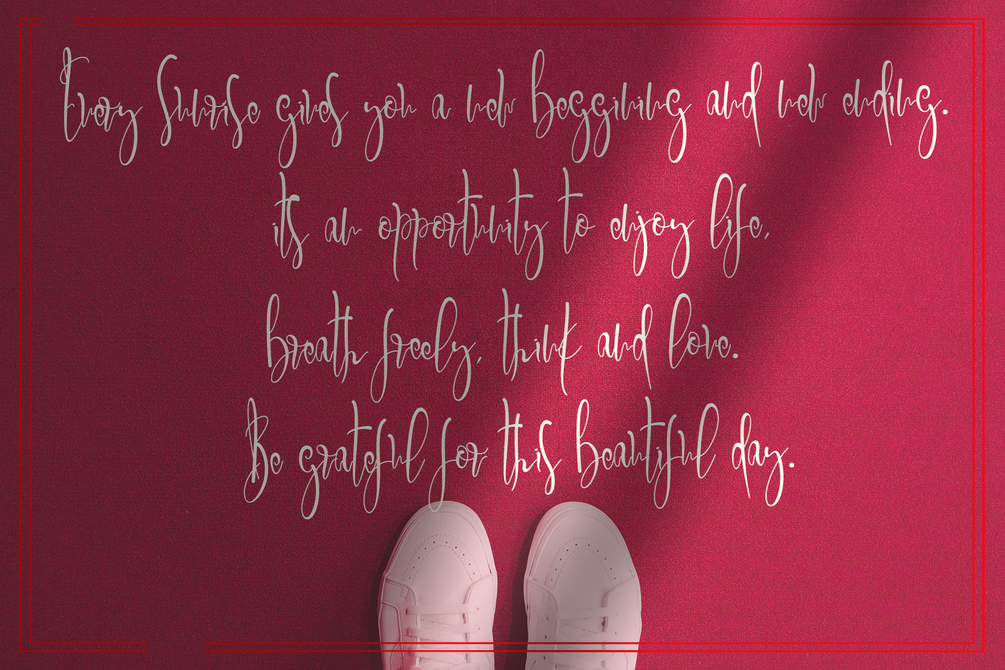 Every Sunrise gives you a new Beggining and new ending.
it's an opportunity to enjoy life,
breath freely, think and love.
Be grateful for this beautiful day.